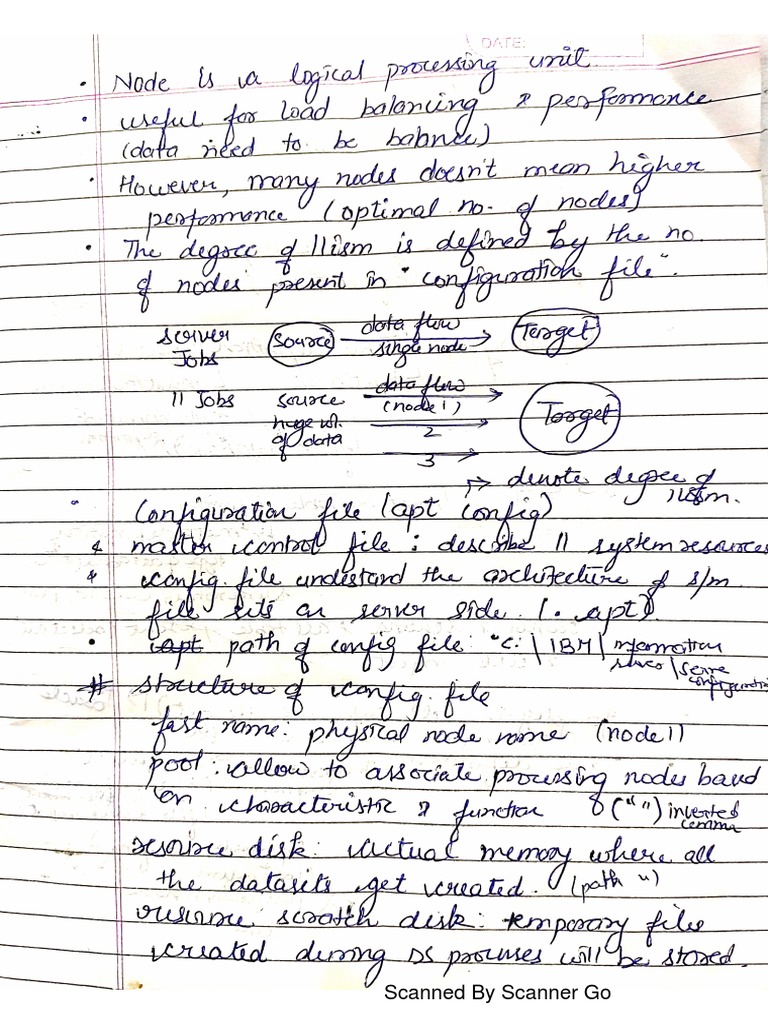 DATE:
• Node is a logical processing unit
• useful for load balancing & performance
(data need to be balance)
• However, many nodes doesn't mean higher
performance (optimal no. of nodes)
• The degree of llism is defined by the no.
of nodes present in "configuration file".
server Jobs Source data flow single node Target
II Jobs source data flow (node 1) Target
huge of data 2
3
↦ denote degree of llism.
• Configuration file (apt config)
master control file : describe II system resources
config. file undestand the architecture of s/m
file sits on server side. (. apt)
• path of config file: "C: \ IBM \ Information
# structure of config. file
fast name: physical node name (node 1)
pool: allow to associate processing nodes based
on characteristic & function (" ") inverted comma
resource disk: actual memory where all
the datasets get created. (path ")
resource scratch disk: temporary files
created during DS processes will be stored.
Scanned By Scanner Go